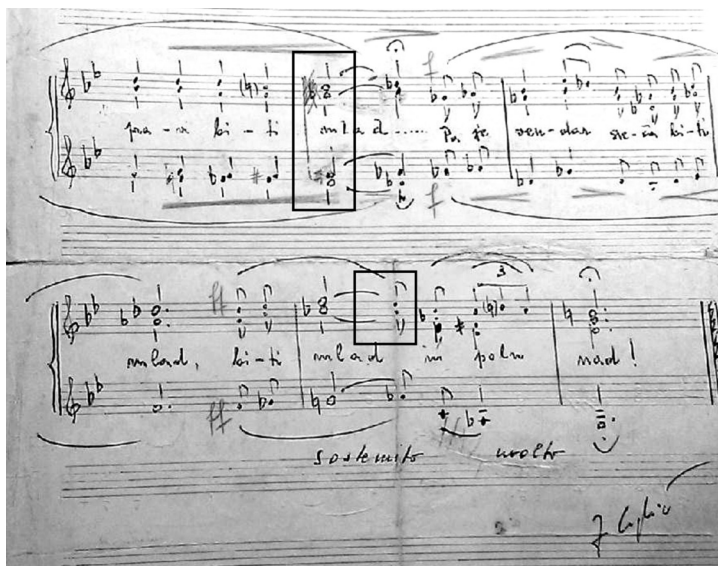 f
bi-ti mlad..... Pa je ven-dar sre-ča bi-ti
f
ff 3
mlad, bi-ti mlad in poln nad!
ff
sostenuto molto